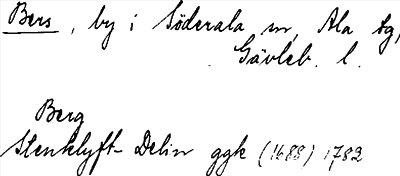 Bers, by i Söderala sn, Ala tg,
Gävleb. l.
Berg
Stenklyft- Delin ggk (1688) 1782